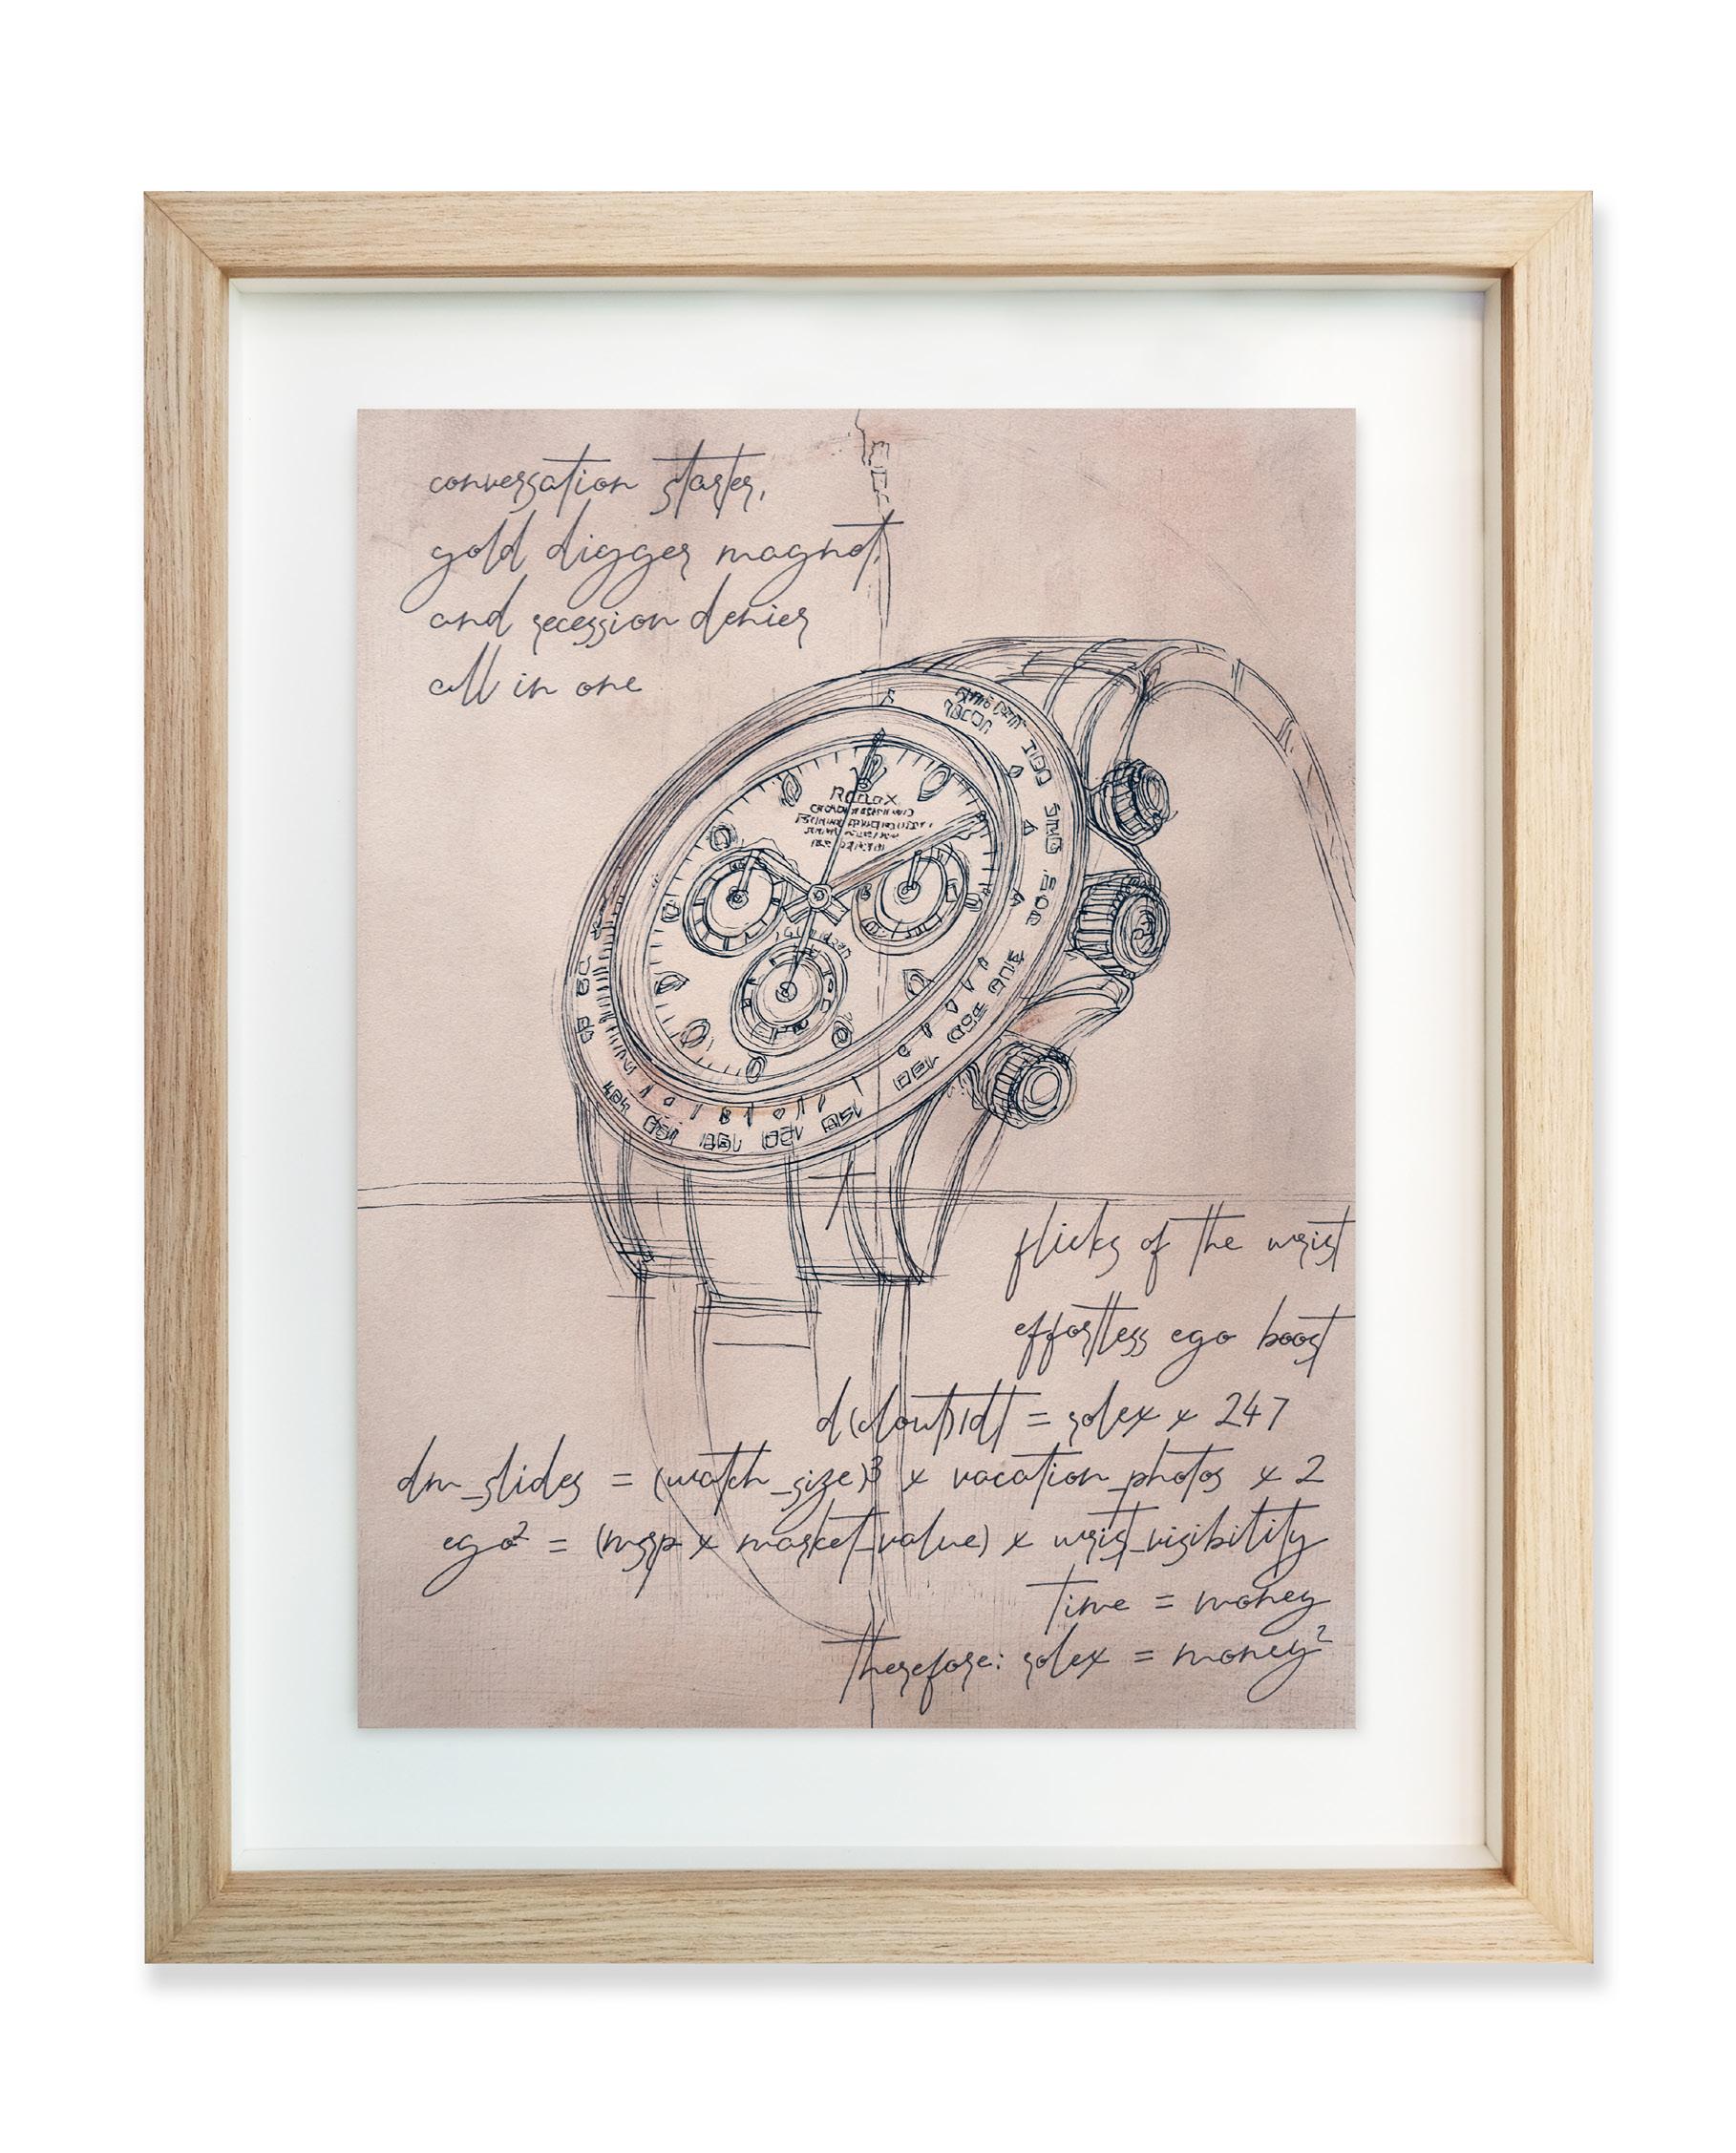 conversation starter,
gold digger magnet,
and recession denier
all in one
flicks of the wrist
effortless ego boost
d(clout)/dt = rolex x 247
dm_slides = (watch_size)³ x vacation_photos x 2
ego² = (msrp x market_value) x wrist_visibility
time = money
therefore: rolex = money²